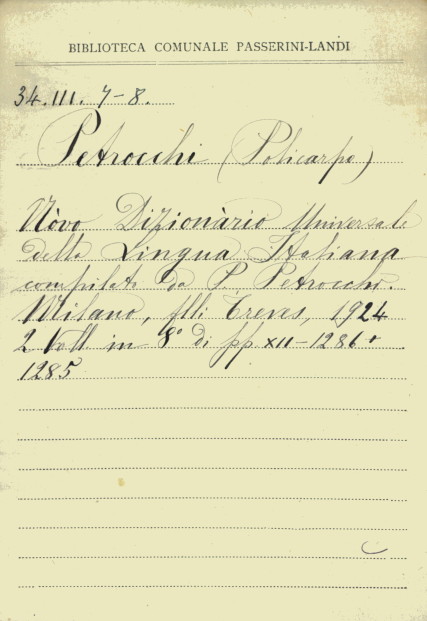 BIBLIOTECA COMUNALE PASSERINI-LANDI
34.III.7-8.
Petrocchi (Policarpo)
Nòvo Dizionàrio Universale
della Lingua Italiana
compilato da P. Petrocchi.
Milano, flli Treves, 1924
2 Voll. in 8° di pp. XII-1286+
1285